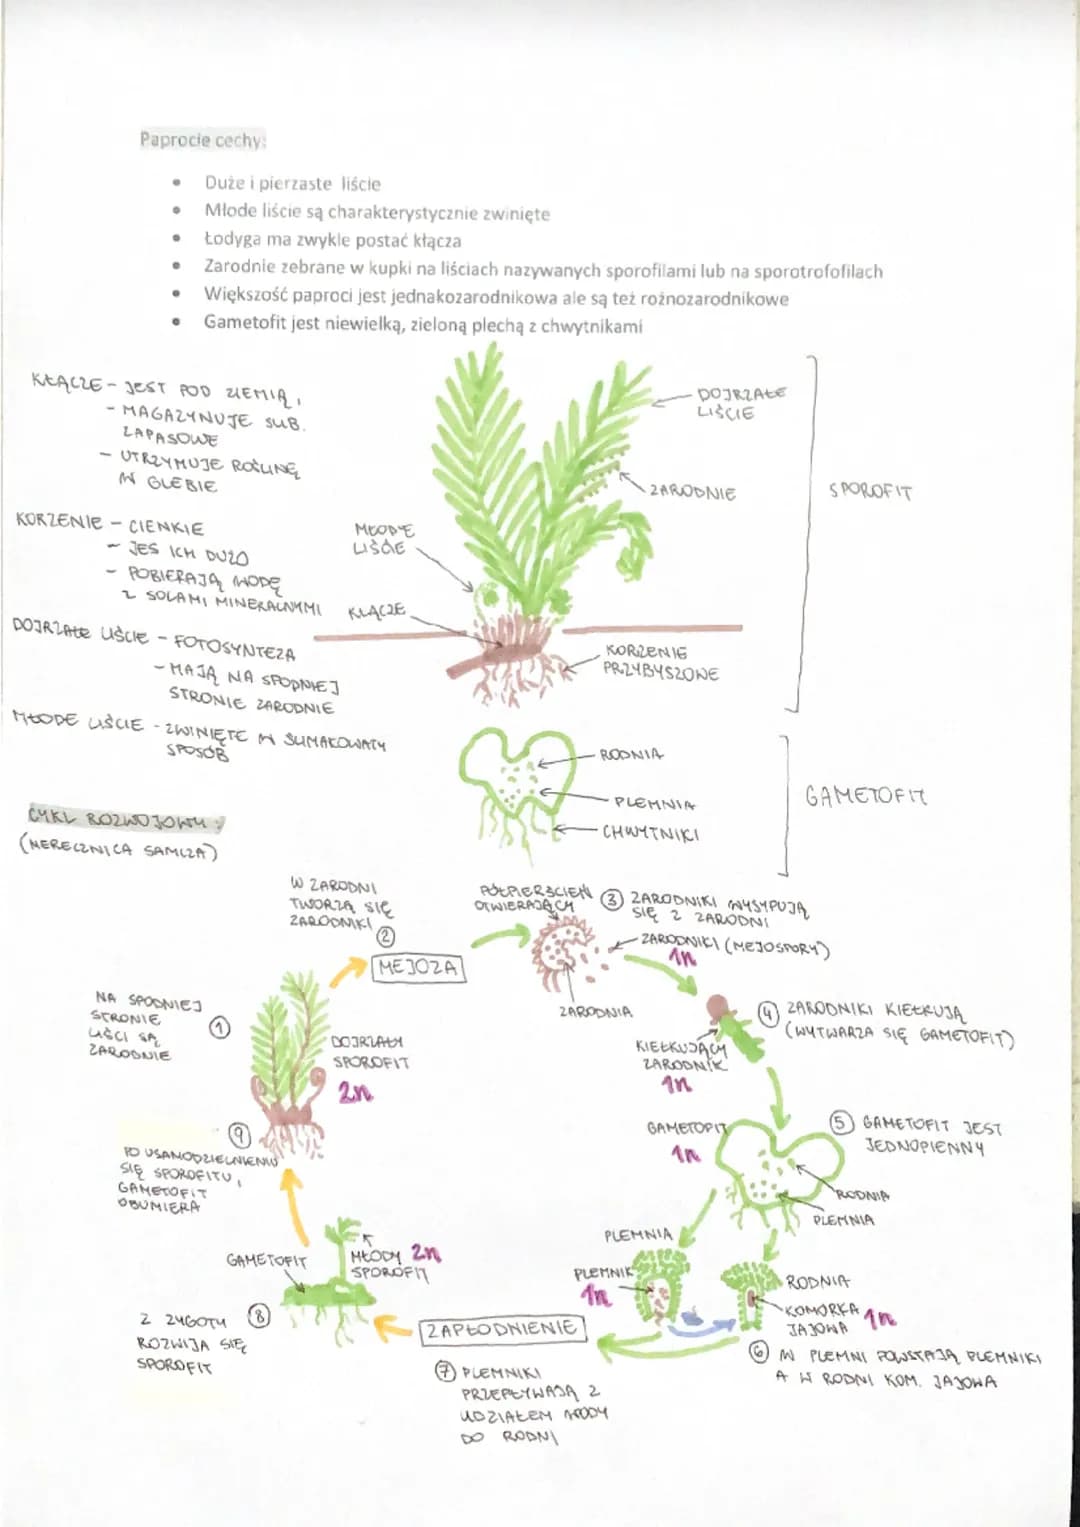 Paprocie cechy:
• Duże i pierzaste liście
• Młode liście są charakterystycznie zwinięte
• Łodyga ma zwykle postać kłącza
• Zarodnie zebrane w kupki na liściach nazywanych sporofilami lub na sporotrofofilach
• Większość paproci jest jednakozarodnikowa ale są też roźnozarodnikowe
• Gametofit jest niewielką, zieloną plechą z chwytnikami
KŁĄCZE - JEST POD ZIEMIĄ,
- MAGAZYNUJE SUB.
ZAPASOWE
- UTRZYMUJE ROŚLINĘ
W GLEBIE
KORZENIE - CIENKIE
- JES ICH DUŻO
- POBIERAJĄ WODĘ
Z SOLAMI MINERALNYMI
DOJRZAŁE LIŚCIE - FOTOSYNTEZA
- MAJĄ NA SPODNIEJ
STRONIE ZARODNIE
MŁODE LIŚCIE - ZWINIĘTE W ŚLIMAKOWATY
SPOSÓB
DOJRZAŁE
LIŚCIE
ZARODNIE
SPOROFIT
MŁODE
LIŚCIE
KŁĄCZE
KORZENIE
PRZYBYSZOWE
RODNIA
PLEMNIA
CHWYTNIKI
GAMETOFIT
CYKL ROZWOJOWY:
(NERECZNICA SAMCZA)
W ZARODNI
TWORZĄ SIĘ
ZARODNIKI
②
MEJOZA
PÓŁPIERŚCIEŃ
OTWIERAJĄCY
③ ZARODNIKI WYSYPUJĄ
SIĘ Z ZARODNI
ZARODNIKI (MEJOSPORY)
1n
ZARODNIA
NA SPODNIEJ
STRONIE
LIŚCI SĄ
ZARODNIE
①
DOJRZAŁY
SPOROFIT
2n
④ ZARODNIKI KIEŁKUJĄ
(WYTWARZA SIĘ GAMETOFIT)
KIEŁKUJĄCY
ZARODNIK
1n
GAMETOFIT
1n
⑤ GAMETOFIT JEST
JEDNOPIENNY
RODNIA
PLEMNIA
⑨
PO USAMODZIELNIENIU
SIĘ SPOROFITU,
GAMETOFIT
OBUMIERA
GAMETOFIT
MŁODY 2n
SPOROFIT
PLEMNIA
PLEMNIK
1n
RODNIA
KOMÓRKA 1n
JAJOWA
⑥ W PLEMNI POWSTAJĄ PLEMNIKI
A W RODNI KOM. JAJOWA
Z ZYGOTY ⑧
ROZWIJA SIĘ
SPOROFIT
ZAPŁODNIENIE
⑦ PLEMNIKI
PRZEPŁYWAJĄ Z
UDZIAŁEM WODY
DO RODNI